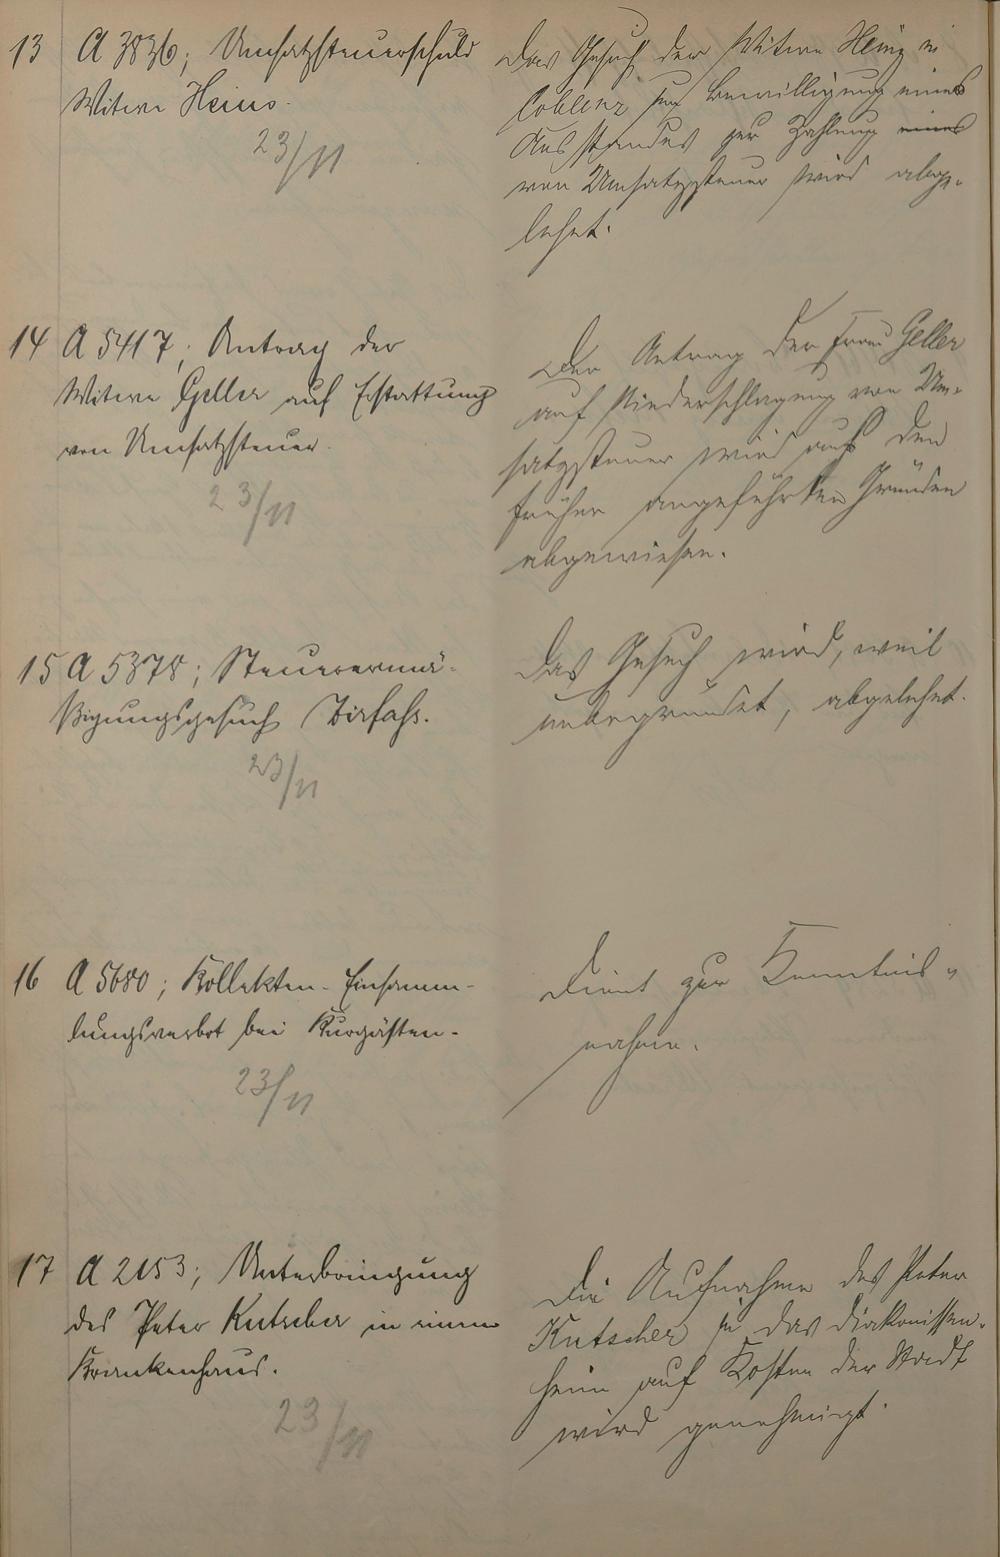 13 A 3836; Umsatzsteuerschuld
Witwe Heins.
23/11
Das Gesuch der Witwe Heinz in
Coblenz um Bewilligung eines
Ausstandes zur Zahlung eines
von Umsatzsteuer wird abge-
lehnt.
14 A 5417; Antrag der
Witwe Geller auf Erstattung
von Umsatzsteuer.
23/11
Der Antrag der Frau Geller
auf Niederschlagung von Um-
satzsteuer wird aus den
früher angeführten Gründen
abgewiesen.
15 A 5378; Steuerermä-
ßigungsgesuch
23/11
Das Gesuch wird, weil
unbegründet, abgelehnt.
16 A 5680; Kollekten-Einsamm-
lungsverbot bei Kurgästen.
23/11
Dient zur Kenntnis-
nahme.
17 A 2153; Unterbringung
des Peter Kutscher in einem
Krankenhaus.
23/11
Die Aufnahme des Peter
Kutscher in das Diakonissen-
heim auf Kosten der Stadt
wird genehmigt.